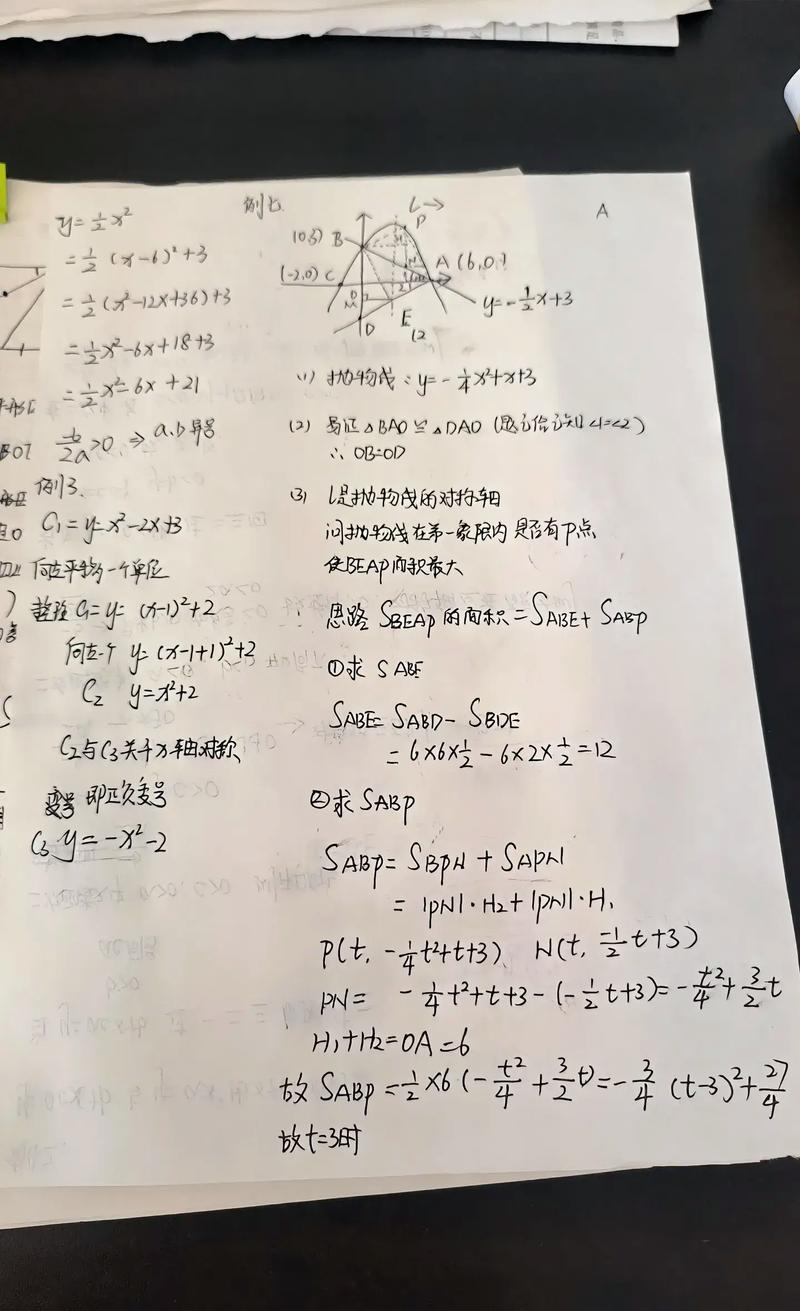 y=½x²
=½(x-6)²+3
=½(x²-12x+36)+3
=½x²-6x+18+3
=½x²-6x+21
b/2a>0 ⇒ a,b异号
例3.
C₁=y=x²-2x+3
向左平移一个单位
整理 C₁=y=(x-1)²+2
向左一个 y=(x-1+1)²+2
C₂ y=x²+2
C₂与C₃关于x轴对称
变号 即正负变号
C₃ y=-x²-2
例七
A
l→
P
(0,3) B
A (6,0)
(-2,0) C
y=-½x+3
D
E
(1) 抛物线:y=-¼x²+x+3
(2) 易证△BAO≌△DAO (题设信设知∠1=∠2)
∴OB=OD
(3) l是抛物线的对称轴
问抛物线在第一象限内是否有P点
使BEAP面积最大
思路 SBEAP的面积=SABE+SABP
①求SABE
SABE=SABD-SBDE
=6×6×½-6×2×½=12
②求SABP
SABP=SBPN+SAPN
=|PN|·H₂+|PN|·H₁
P(t,-¼t²+t+3)、N(t,-½t+3)
PN=-¼t²+t+3-(-½t+3)=-t²/4+3/2t
H₁+H₂=OA=6
故SABP=½×6(-t²/4+3/2t)=-¾(t-3)²+27/4
故t=3时